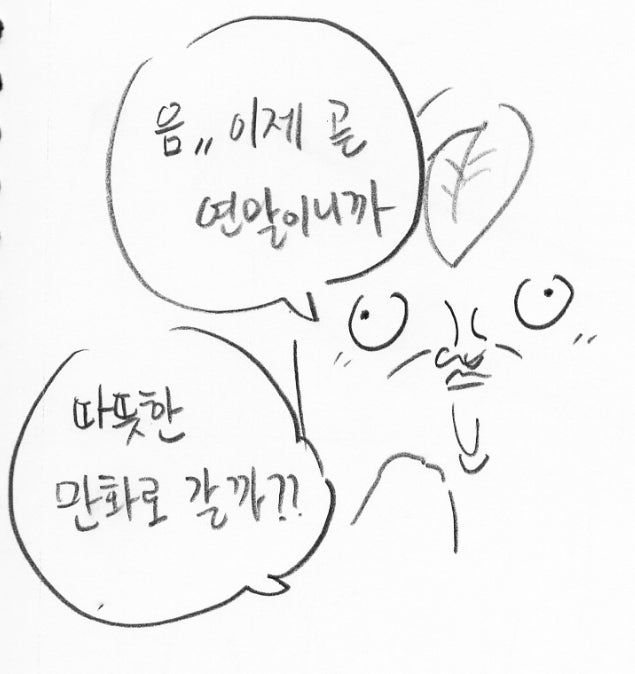 음,, 이제 곧
연말이니까
따뜻한
만화로 갈까??